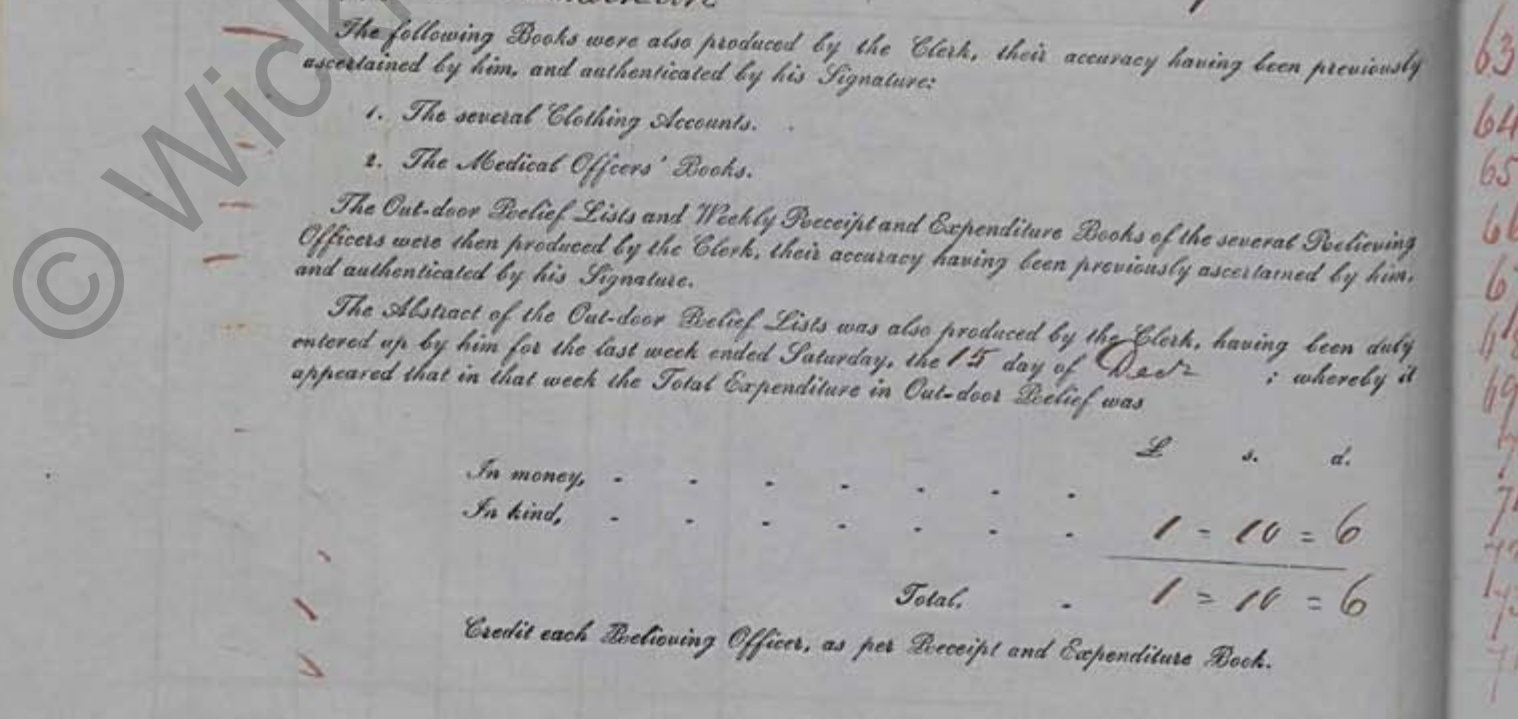 The following Books were also produced by the Clerk, their accuracy having been previously
ascertained by him, and authenticated by his Signature:
1. The several Clothing Accounts.
2. The Medical Officers' Books.
The Out-door Relief Lists and Weekly Receipt and Expenditure Books of the several Relieving
Officers were then produced by the Clerk, their accuracy having been previously ascertained by him,
and authenticated by his Signature.
The Abstract of the Out-door Relief Lists was also produced by the Clerk, having been duly
entered up by him for the last week ended Saturday, the 15 day of Decr ; whereby it
appeared that in that week the Total Expenditure in Out-door Relief was
£ s. d.
In money, - - - - - - -
In kind, - - - - - - - 1 = 10 = 6
Total, - 1 = 10 = 6
Credit each Relieving Officer, as per Receipt and Expenditure Book.
© Wick
63
64
65